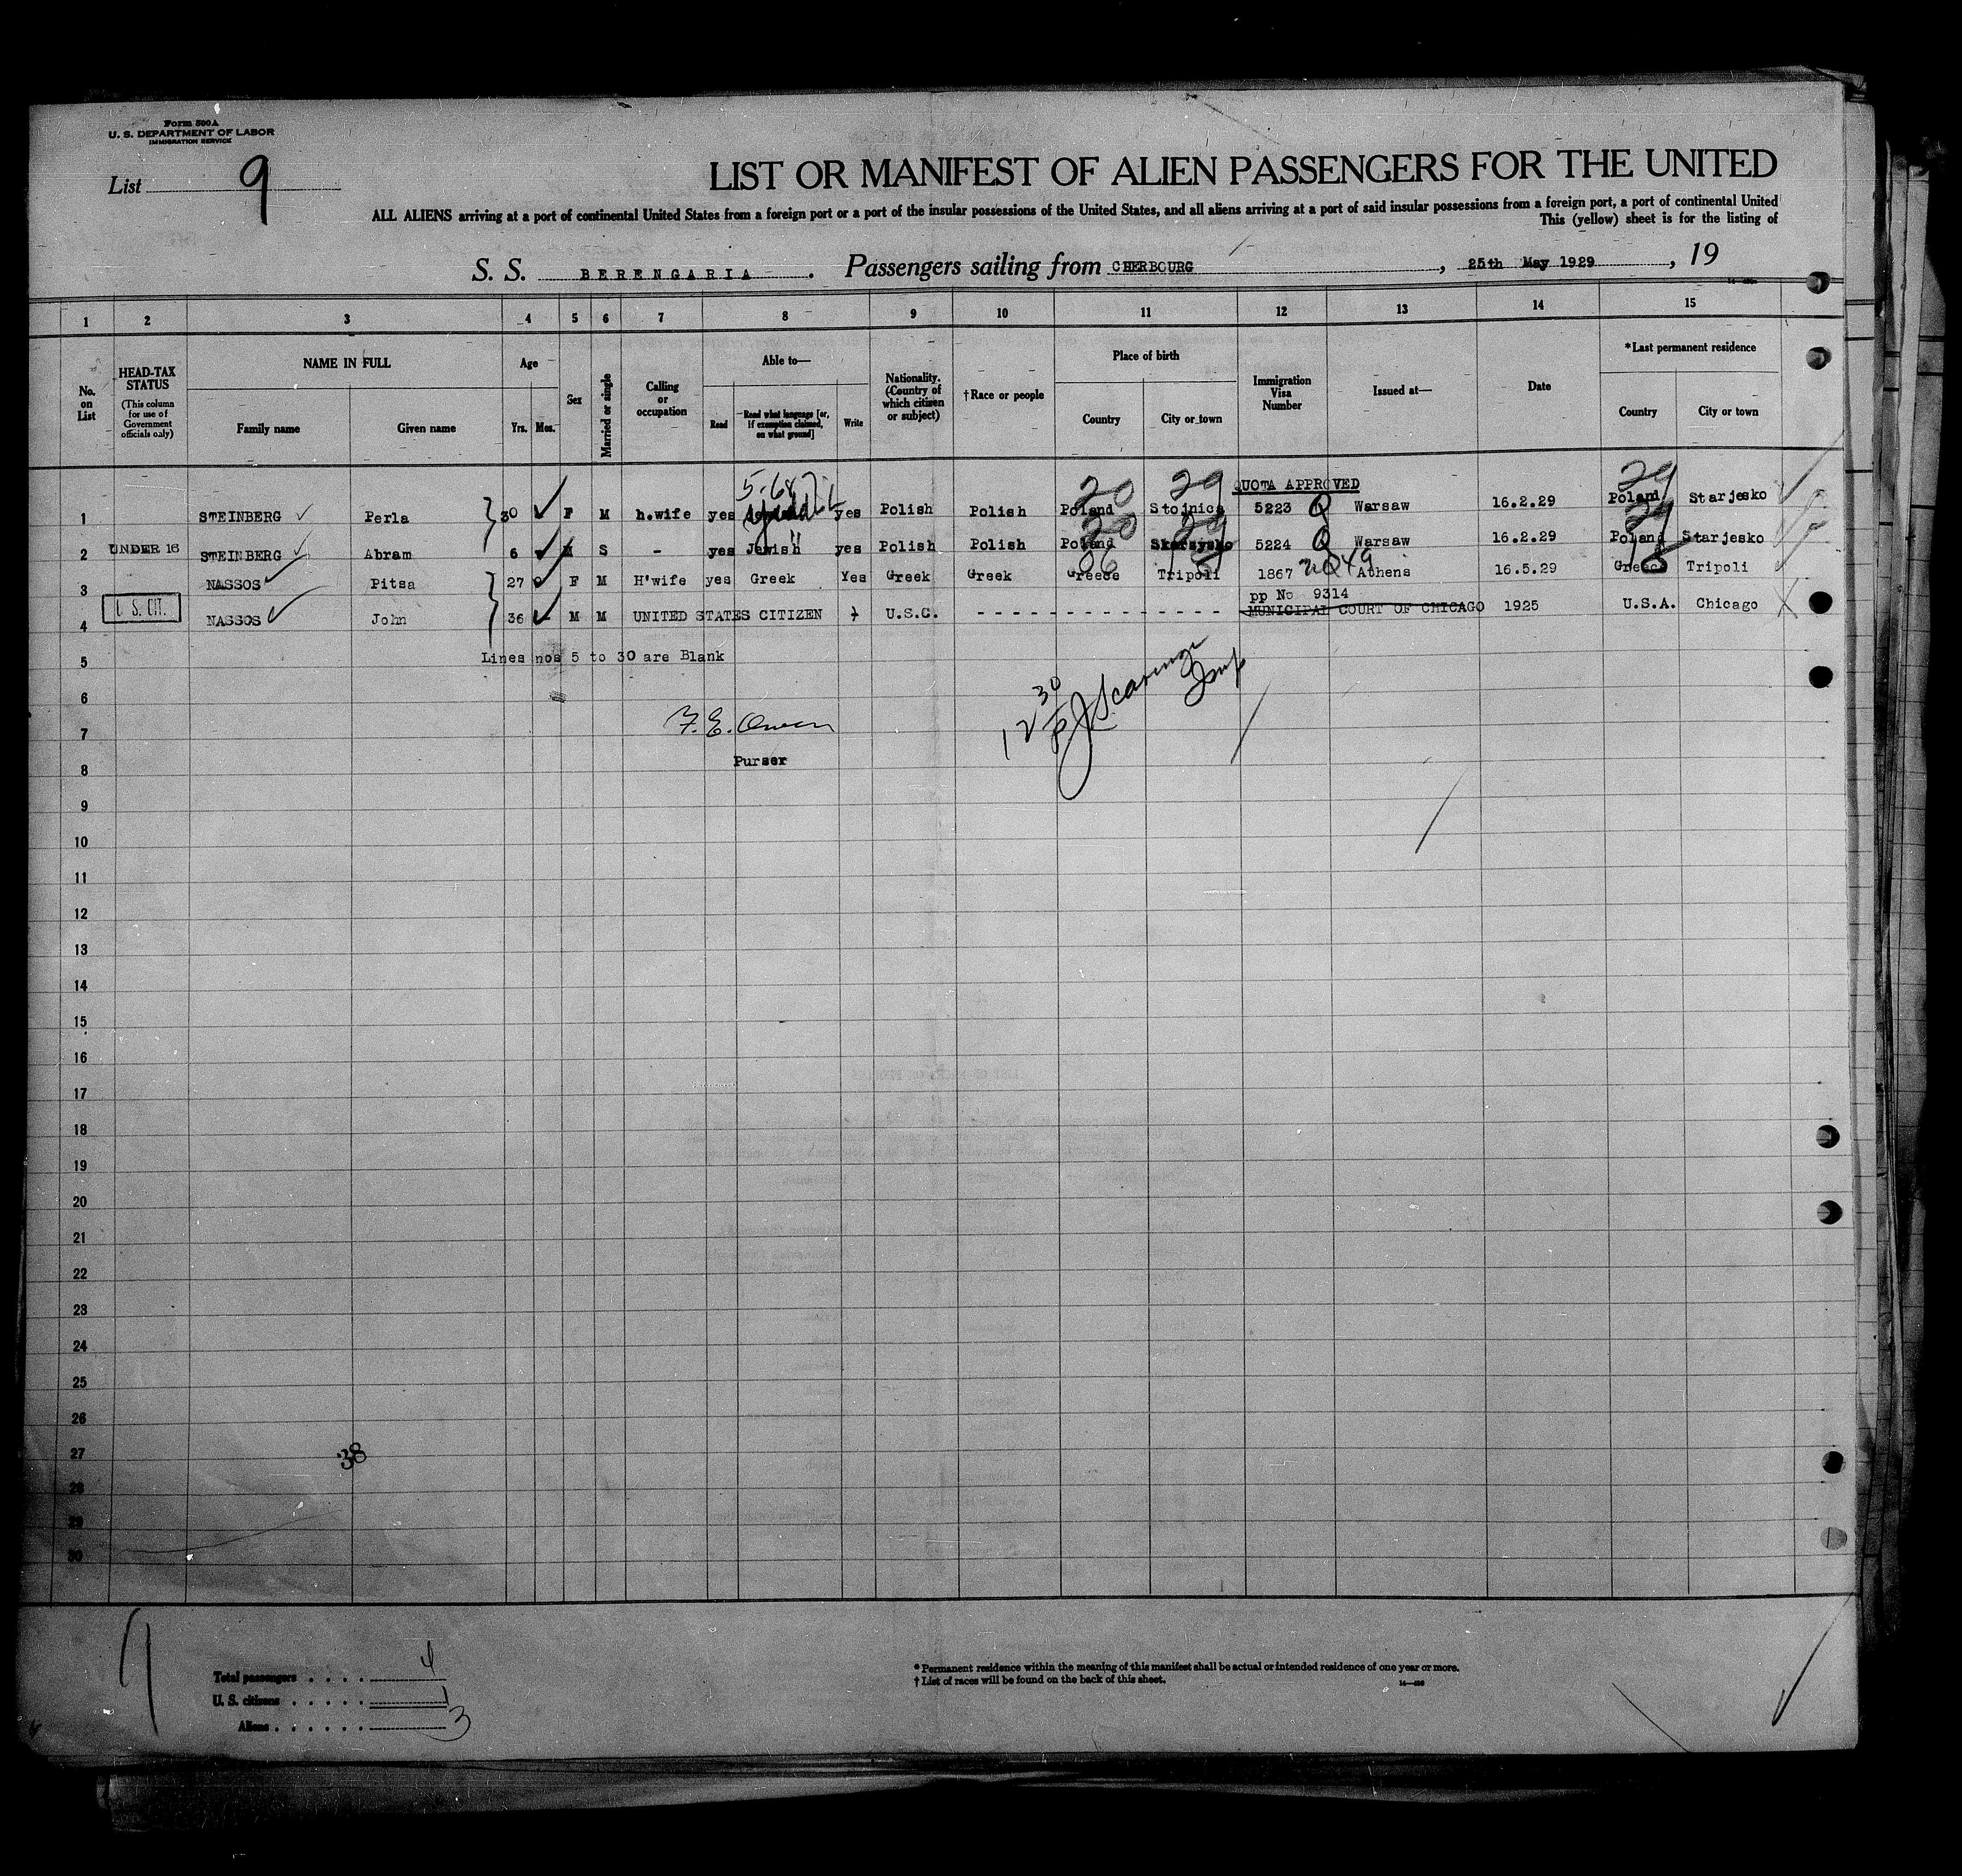 Form 500A
U. S. DEPARTMENT OF LABOR
IMMIGRATION SERVICE
List 9
LIST OR MANIFEST OF ALIEN PASSENGERS FOR THE UNITED
ALL ALIENS arriving at a port of continental United States from a foreign port or a port of the insular possessions of the United States, and all aliens arriving at a port of said insular possessions from a foreign port, a port of continental United
This (yellow) sheet is for the listing of
S. S. BERENGARIA . Passengers sailing from CHERBOURG , 25th May 1929 , 19
1 2 3 4 5 6 7 8 9 10 11 12 13 14 15
No. on List
HEAD-TAX STATUS
(This column for use of Government officials only)
NAME IN FULL
Family name Given name
Age
Yrs. Mos.
Sex
Married or single
Calling or occupation
Able to—
Read
Read what language [or, if exemption claimed, on what ground]
Write
Nationality. (Country of which citizen or subject)
†Race or people
Place of birth
Country City or town
Immigration Visa Number
Issued at—
Date
*Last permanent residence
Country City or town
5-687
20 29 QUOTA APPROVED 29
1 STEINBERG Perla 30 F M h.wife yes yes Polish Polish Poland Stojnica 5223 Q Warsaw 16.2.29 Poland Starjesko
20 29 29
2 UNDER 16 STEINBERG Abram 6 M S - yes Jewish yes Polish Polish Poland 5224 Q Warsaw 16.2.29 Poland Starjesko
06 18 18
3 NASSOS Pitsa 27 F M H'wife yes Greek Yes Greek Greek Greece Tripoli 1867 NQ49 Athens 16.5.29 Greece Tripoli
pp No 9314
4 U. S. CIT. NASSOS John 36 - M M UNITED STATES CITIZEN U.S.C. - - - - - - - - - - - - - - - - - MUNICIPAL COURT OF CHICAGO 1925 U.S.A. Chicago
5 Lines nos 5 to 30 are Blank
6
7 F. E. Owen
8 Purser
12 30 P
9
10
11
12
13
14
15
16
17
18
19
20
21
22
23
24
25
26
27 38
28
29
30
9
Total passengers . . . . 4
U. S. citizens . . . . . 1
Aliens . . . . . . 3
* Permanent residence within the meaning of this manifest shall be actual or intended residence of one year or more.
† List of races will be found on the back of this sheet.